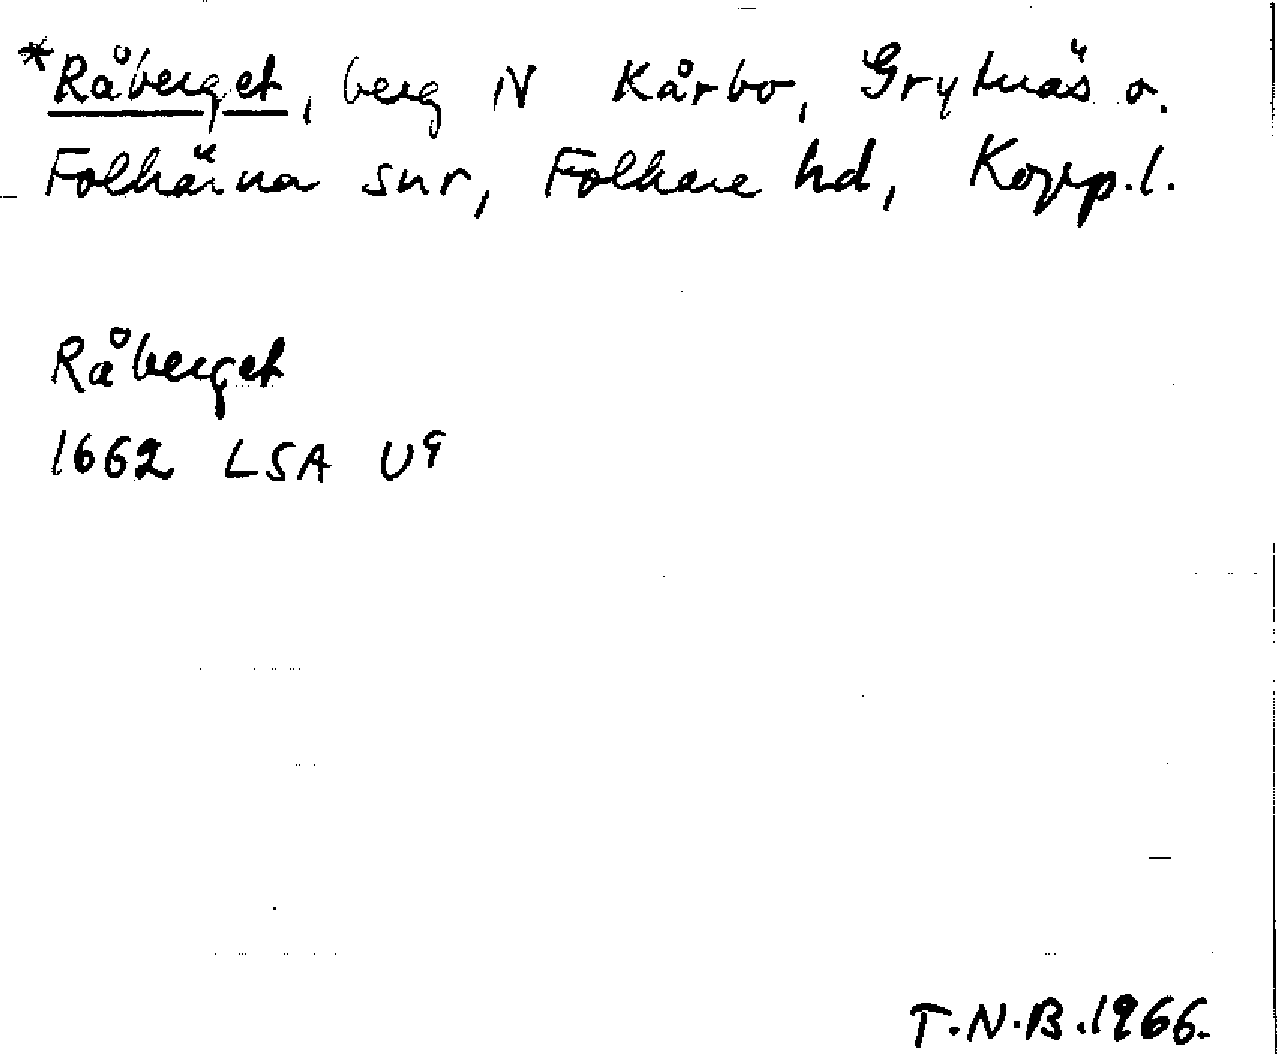 *Råberget, berg N Kårbo, Grytnäs o.
Folkärna snr, Folkare hd, Kopp.l.
Råberget
1662 LSA U9
T.N.B.1966.